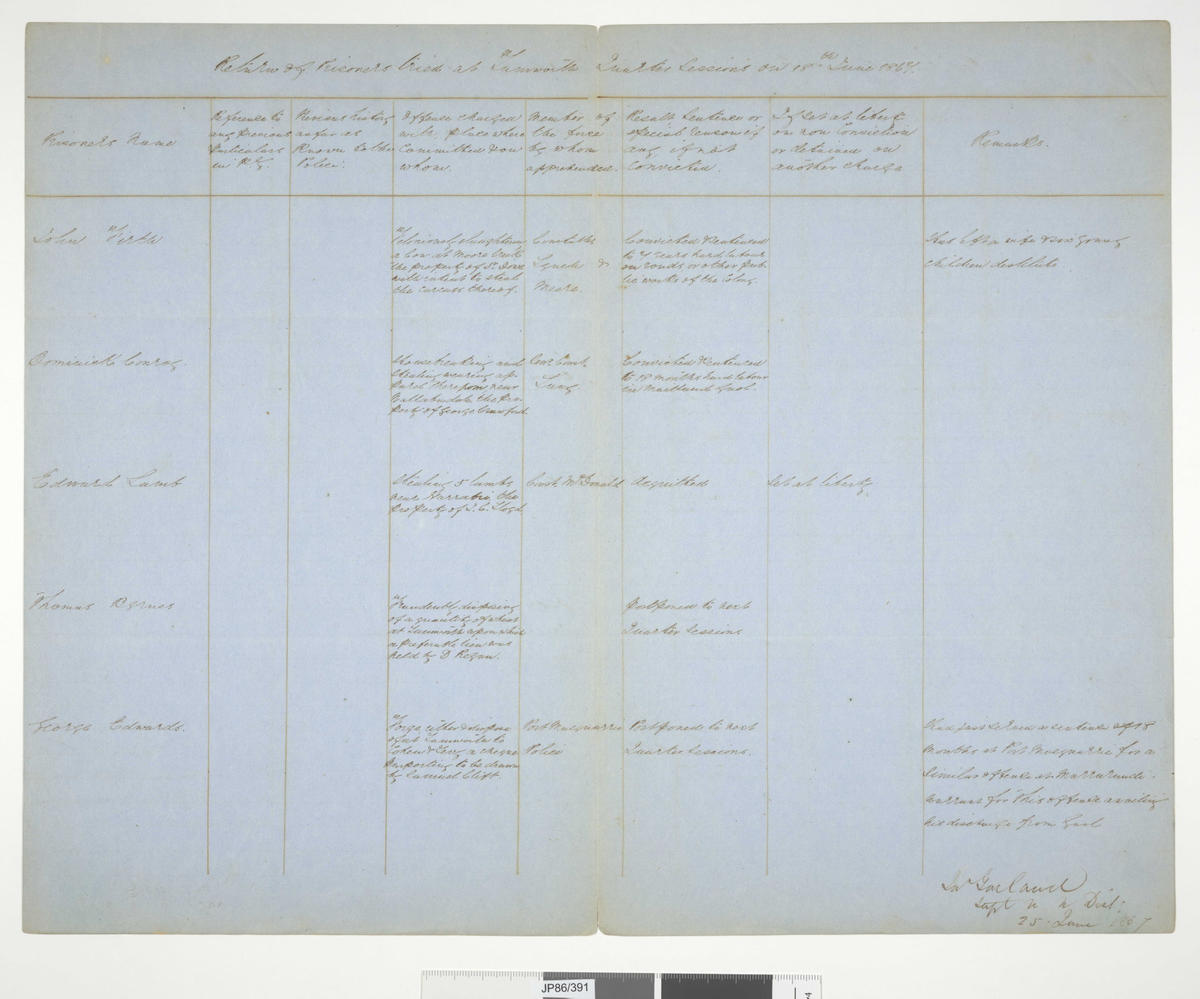 Return of Prisoners tried at Tamworth Quarter Sessions on 18th June 1867.
Prisoners Name
Reference to
any previous
particulars
in
Previous history
as far as
known to the
Police.
Offence charged
with, place where
Committed & on
whom.
Member of
the force
by whom
apprehended.
Result Sentence or
special reason if
any if not
Convicted.
If Set at liberty
on non Conviction
or detained on
another charge
Remarks.
John Firth
Feloniously slaughtering
a Cow at Moore Creek
the property of
with intent to steal
the carcass thereof.
Constables
Lynch &
Meare.
Convicted & Sentenced
to 4 years hard labour
on roads or other pub
lic works of the Colony.
Has left a wife & six young
children destitute
Dominick Conroy
Housebreaking and
Stealing wearing ap
parel therefrom near
Wallabadah the pro
perty of George Crawford
Const.
Lang
Convicted & Sentenced
to 18 months hard labour
in Maitland Gaol.
Edward Lamb
Stealing 5 lambs
near Narrabri the
property of J. C. Lloyd
Const. McDonald
Acquitted
Set at liberty
Thomas Byrnes
Fraudently disposing
of a quantity of wheat
at Tamworth upon which
a preferable lien was
held by D Regan.
Postponed to next
Quarter Sessions
George Edwards.
Forge utter & dispose
of at Tamworth to
Cohen & Levy a cheque
purporting to be drawn
by Samuel Clift
Port Macquarrie
Police
Postponed to next
Quarter Sessions.
Had sentence of 18
months at Port Macquarrie for a
similar offence at Murrurundi
warrant for this offence awaiting
his discharge from Gaol
Jas Garland
Supt N. W. Dist.
25 June 1867
JP86/391